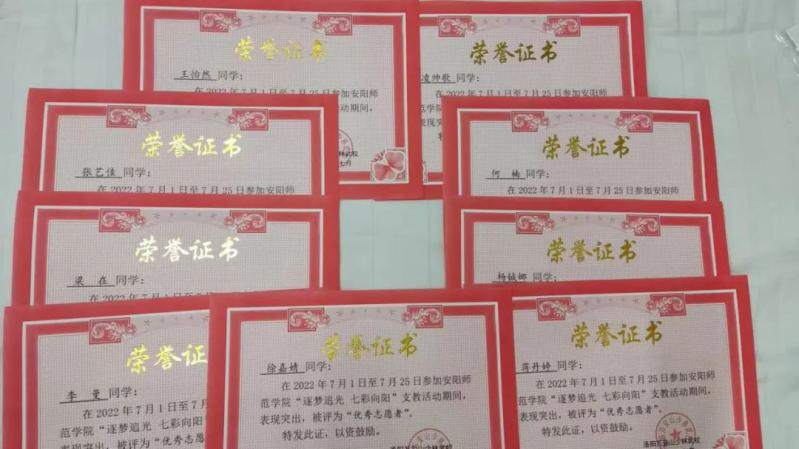 荣誉证书
王怡然 同学：
在2022年7月1日至7月25日参加安阳师
荣誉证书
凌帅歌 同学：
在2022年7月1日至7月25日参加安阳师
范学院“逐梦追光 七彩向阳”支教活动期间，
荣誉证书
张艺佳 同学：
在2022年7月1日至7月25日参加安阳师
荣誉证书
何 楠 同学：
在2022年7月1日至7月25日参加安阳师
荣誉证书
梁 在 同学：
在2022年7月1日至7月25日参加安阳师
荣誉证书
同学：
荣誉证书
李 曼 同学：
在2022年7月1日至7月
范学院“逐梦追光 七
表现突出，被评为“优秀志愿
特发此证，以资鼓励。
荣誉证书
徐嘉婧 同学：
在2022年7月1日至7月25日参加安阳师
范学院“逐梦追光 七彩向阳”支教活动期间，
表现突出，被评为“优秀志愿者”。
特发此证，以资鼓励。
荣誉证书
蒋丹婷 同学：
在2022年7月1日至7月25日参加安阳师
范学院“逐梦追光 七彩向阳”支教活动期间，
表现突出，被评为“优秀志愿者”。
特发此证，以资鼓励。